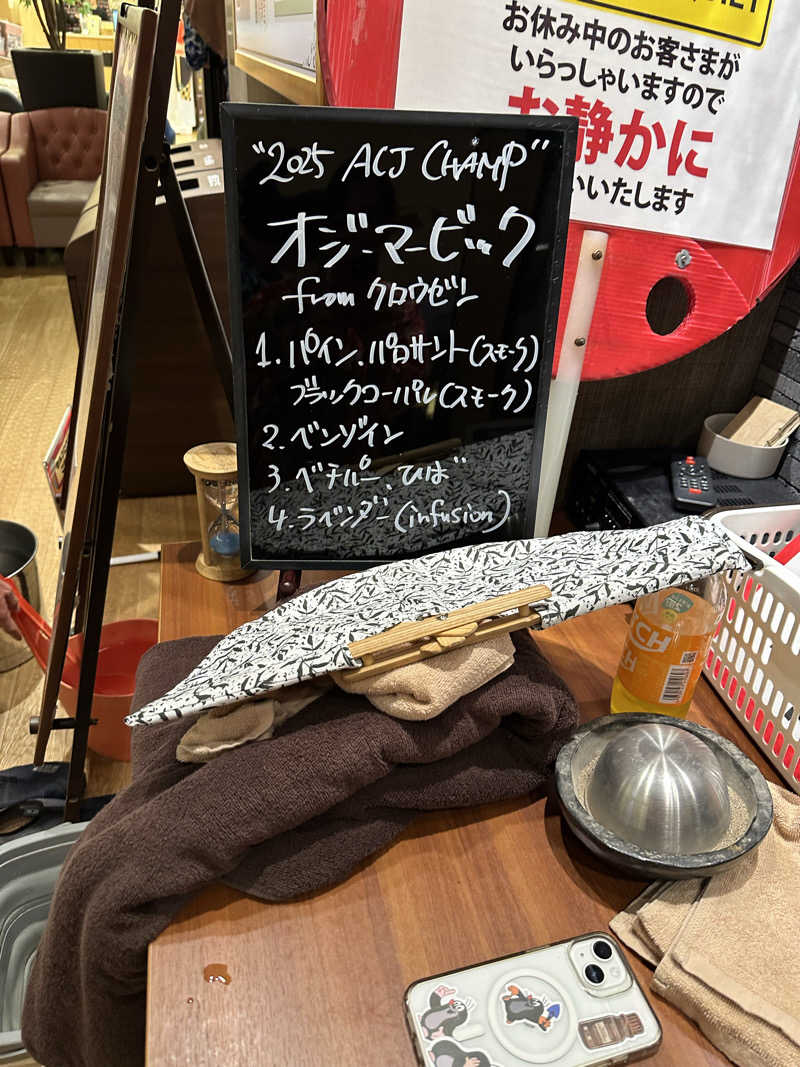 お休み中のお客さまが
いらっしゃいますので
お静かに
いいたします
"2025 ACJ CHAMP"
オジマービック
from クロウゼン
1. パイン、パロサント(スモーク)
ブラックコーパル(スモーク)
2. ベンゾイン
3. ベチパー、ひば
4. ラベンダー(infusion)